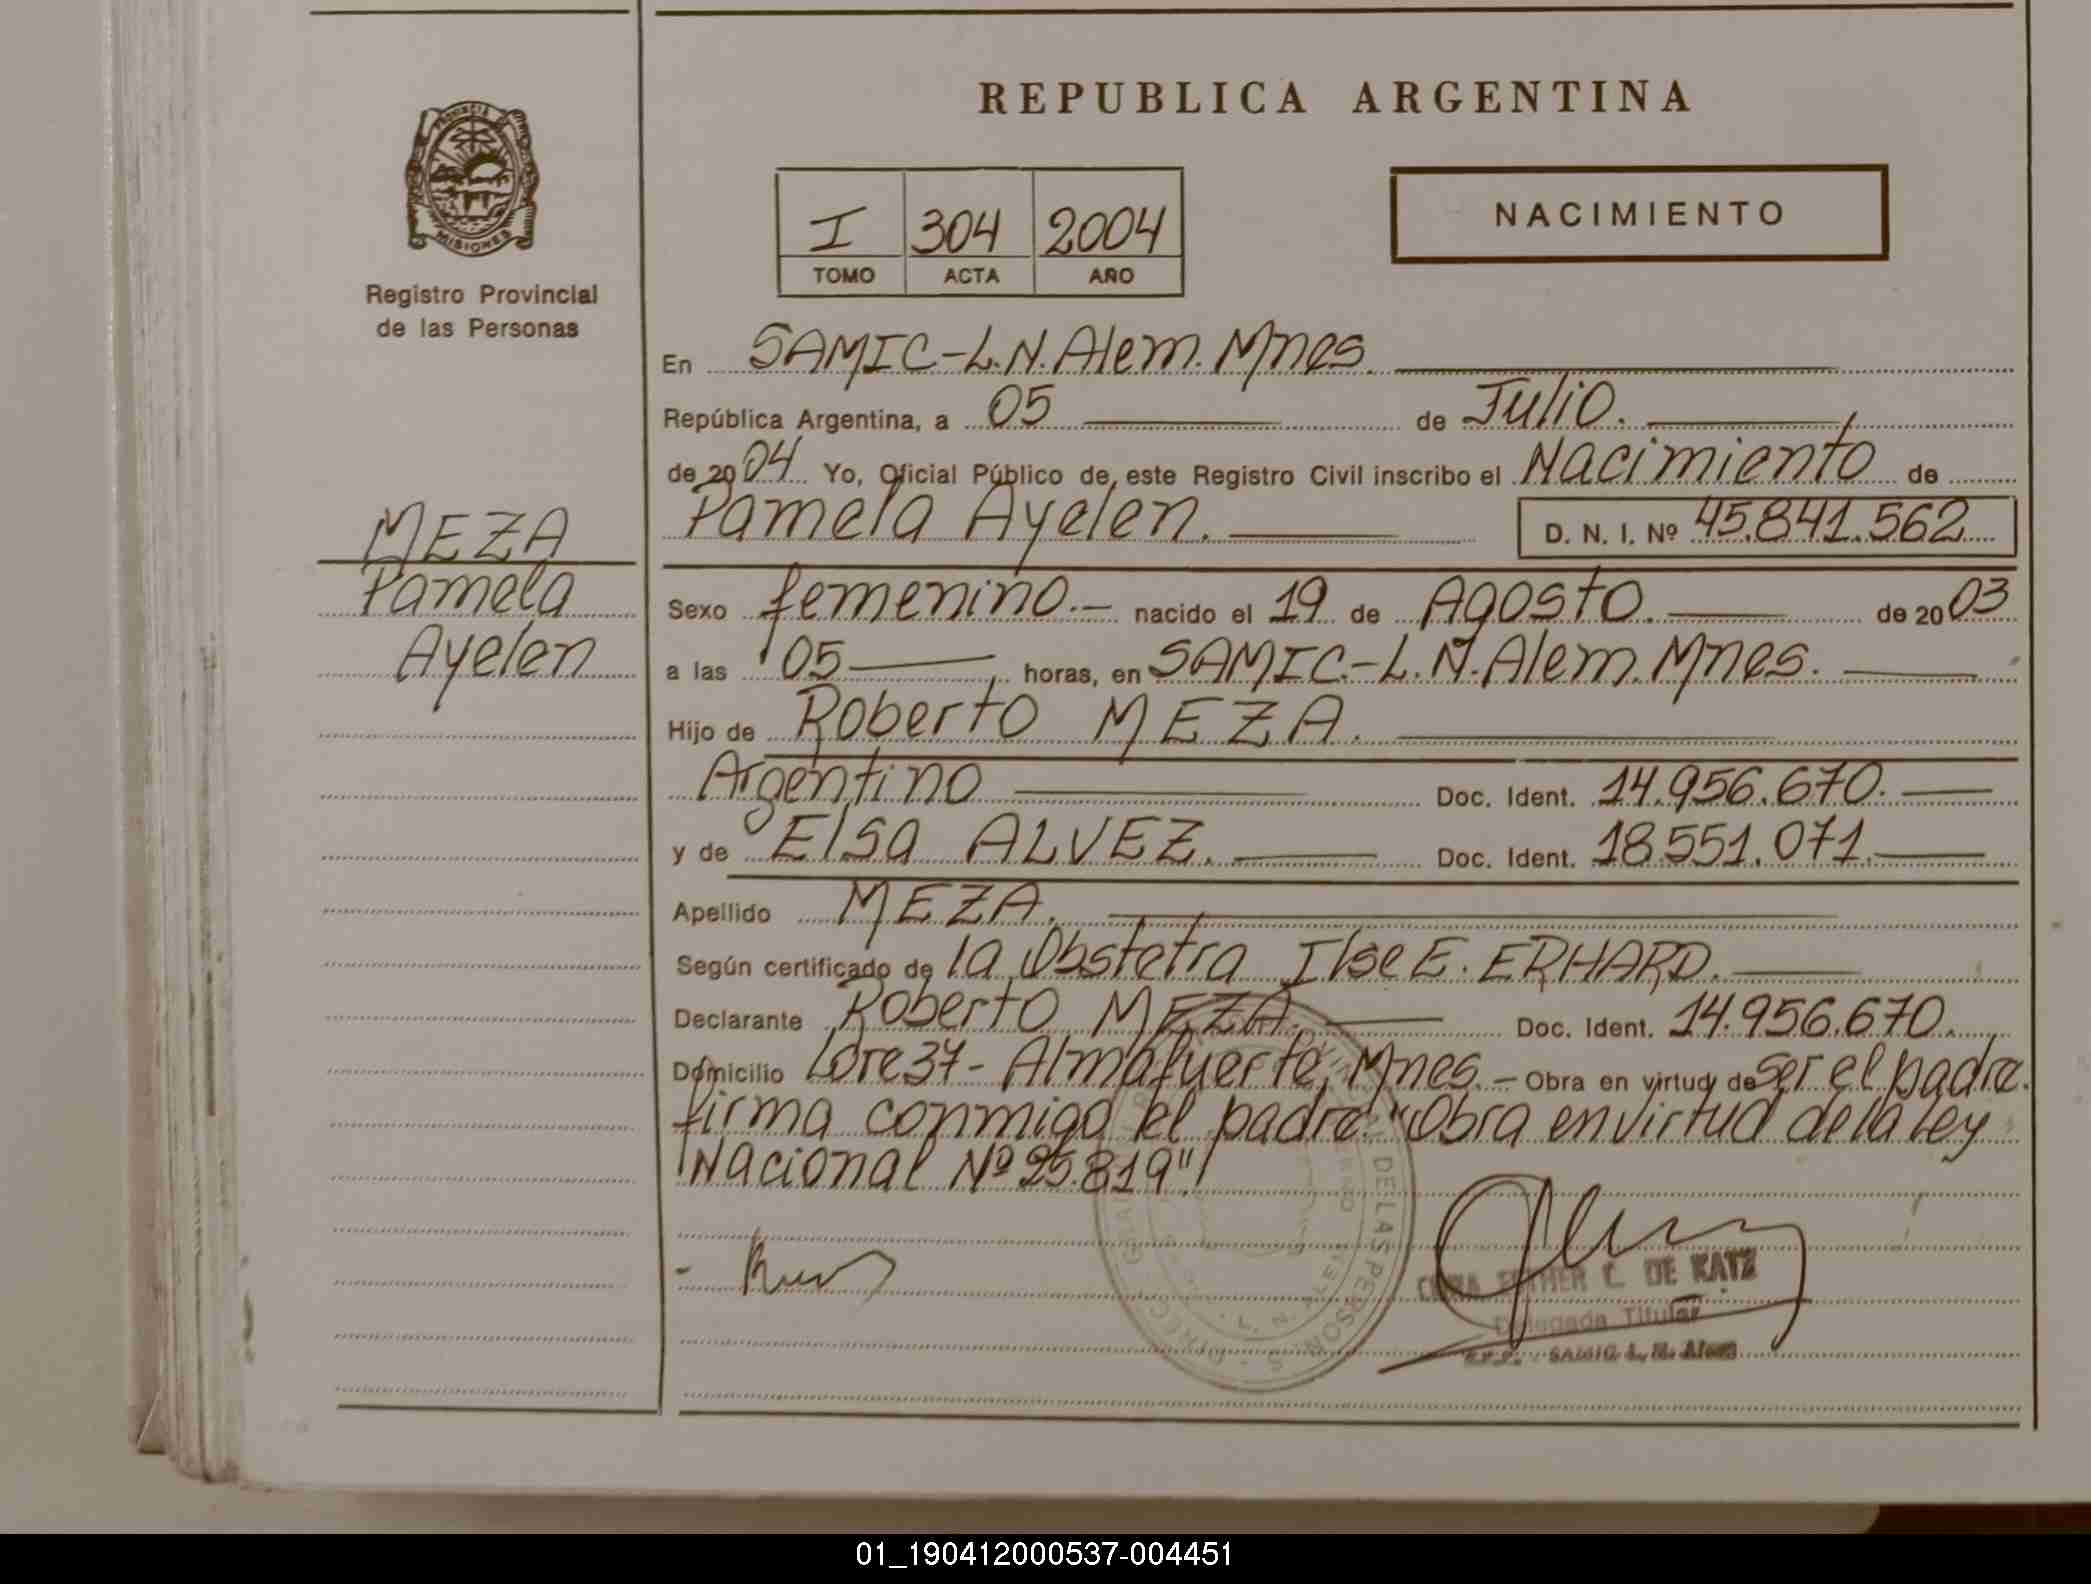 REPUBLICA ARGENTINA
PROVINCIA
MISIONES
Registro Provincial
de las Personas
I 304 2004
TOMO ACTA AÑO
NACIMIENTO
MEZA
Pamela
Ayelen
En SAMIC-L.N.Alem.Mnes.
República Argentina, a 05 de Julio.
de 2004 Yo, Oficial Público de este Registro Civil inscribo el Nacimiento de
Pamela Ayelen. D. N. I. Nº 45.841.562
Sexo femenino.- nacido el 19 de Agosto. de 2003
a las 05 horas, en SAMIC.-L.N.Alem.Mnes.
Hijo de Roberto MEZA.
Argentino Doc. Ident. 14.956.670.
y de Elsa ALVEZ. Doc. Ident. 18.551.071.
Apellido MEZA.
Según certificado de la Obstetra Ilse E. ERHARD.
Declarante Roberto MEZA. Doc. Ident. 14.956.670.
Domicilio Lote 37- Almafuerte, Mnes.- Obra en virtud de ser el padre.
firma conmigo el padre. "Obra en virtud de la Ley
Nacional Nº 25.819".
ESTHER C. DE KATZ
Delegada Titular
SAMIC L. N. Alem
L. N. ALEM
DE LAS PERSONAS
01_190412000537-004451